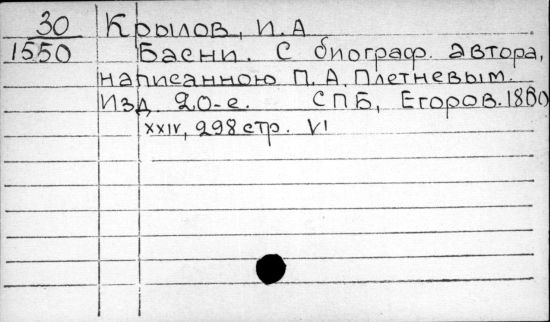 30 Крылов, И. А
1550 Басни. С биограф. автора,
написанною П. А. Плетневым.
Изд 20-е. СПБ, Егоров. 1880
XXIV, 298 стр. VI